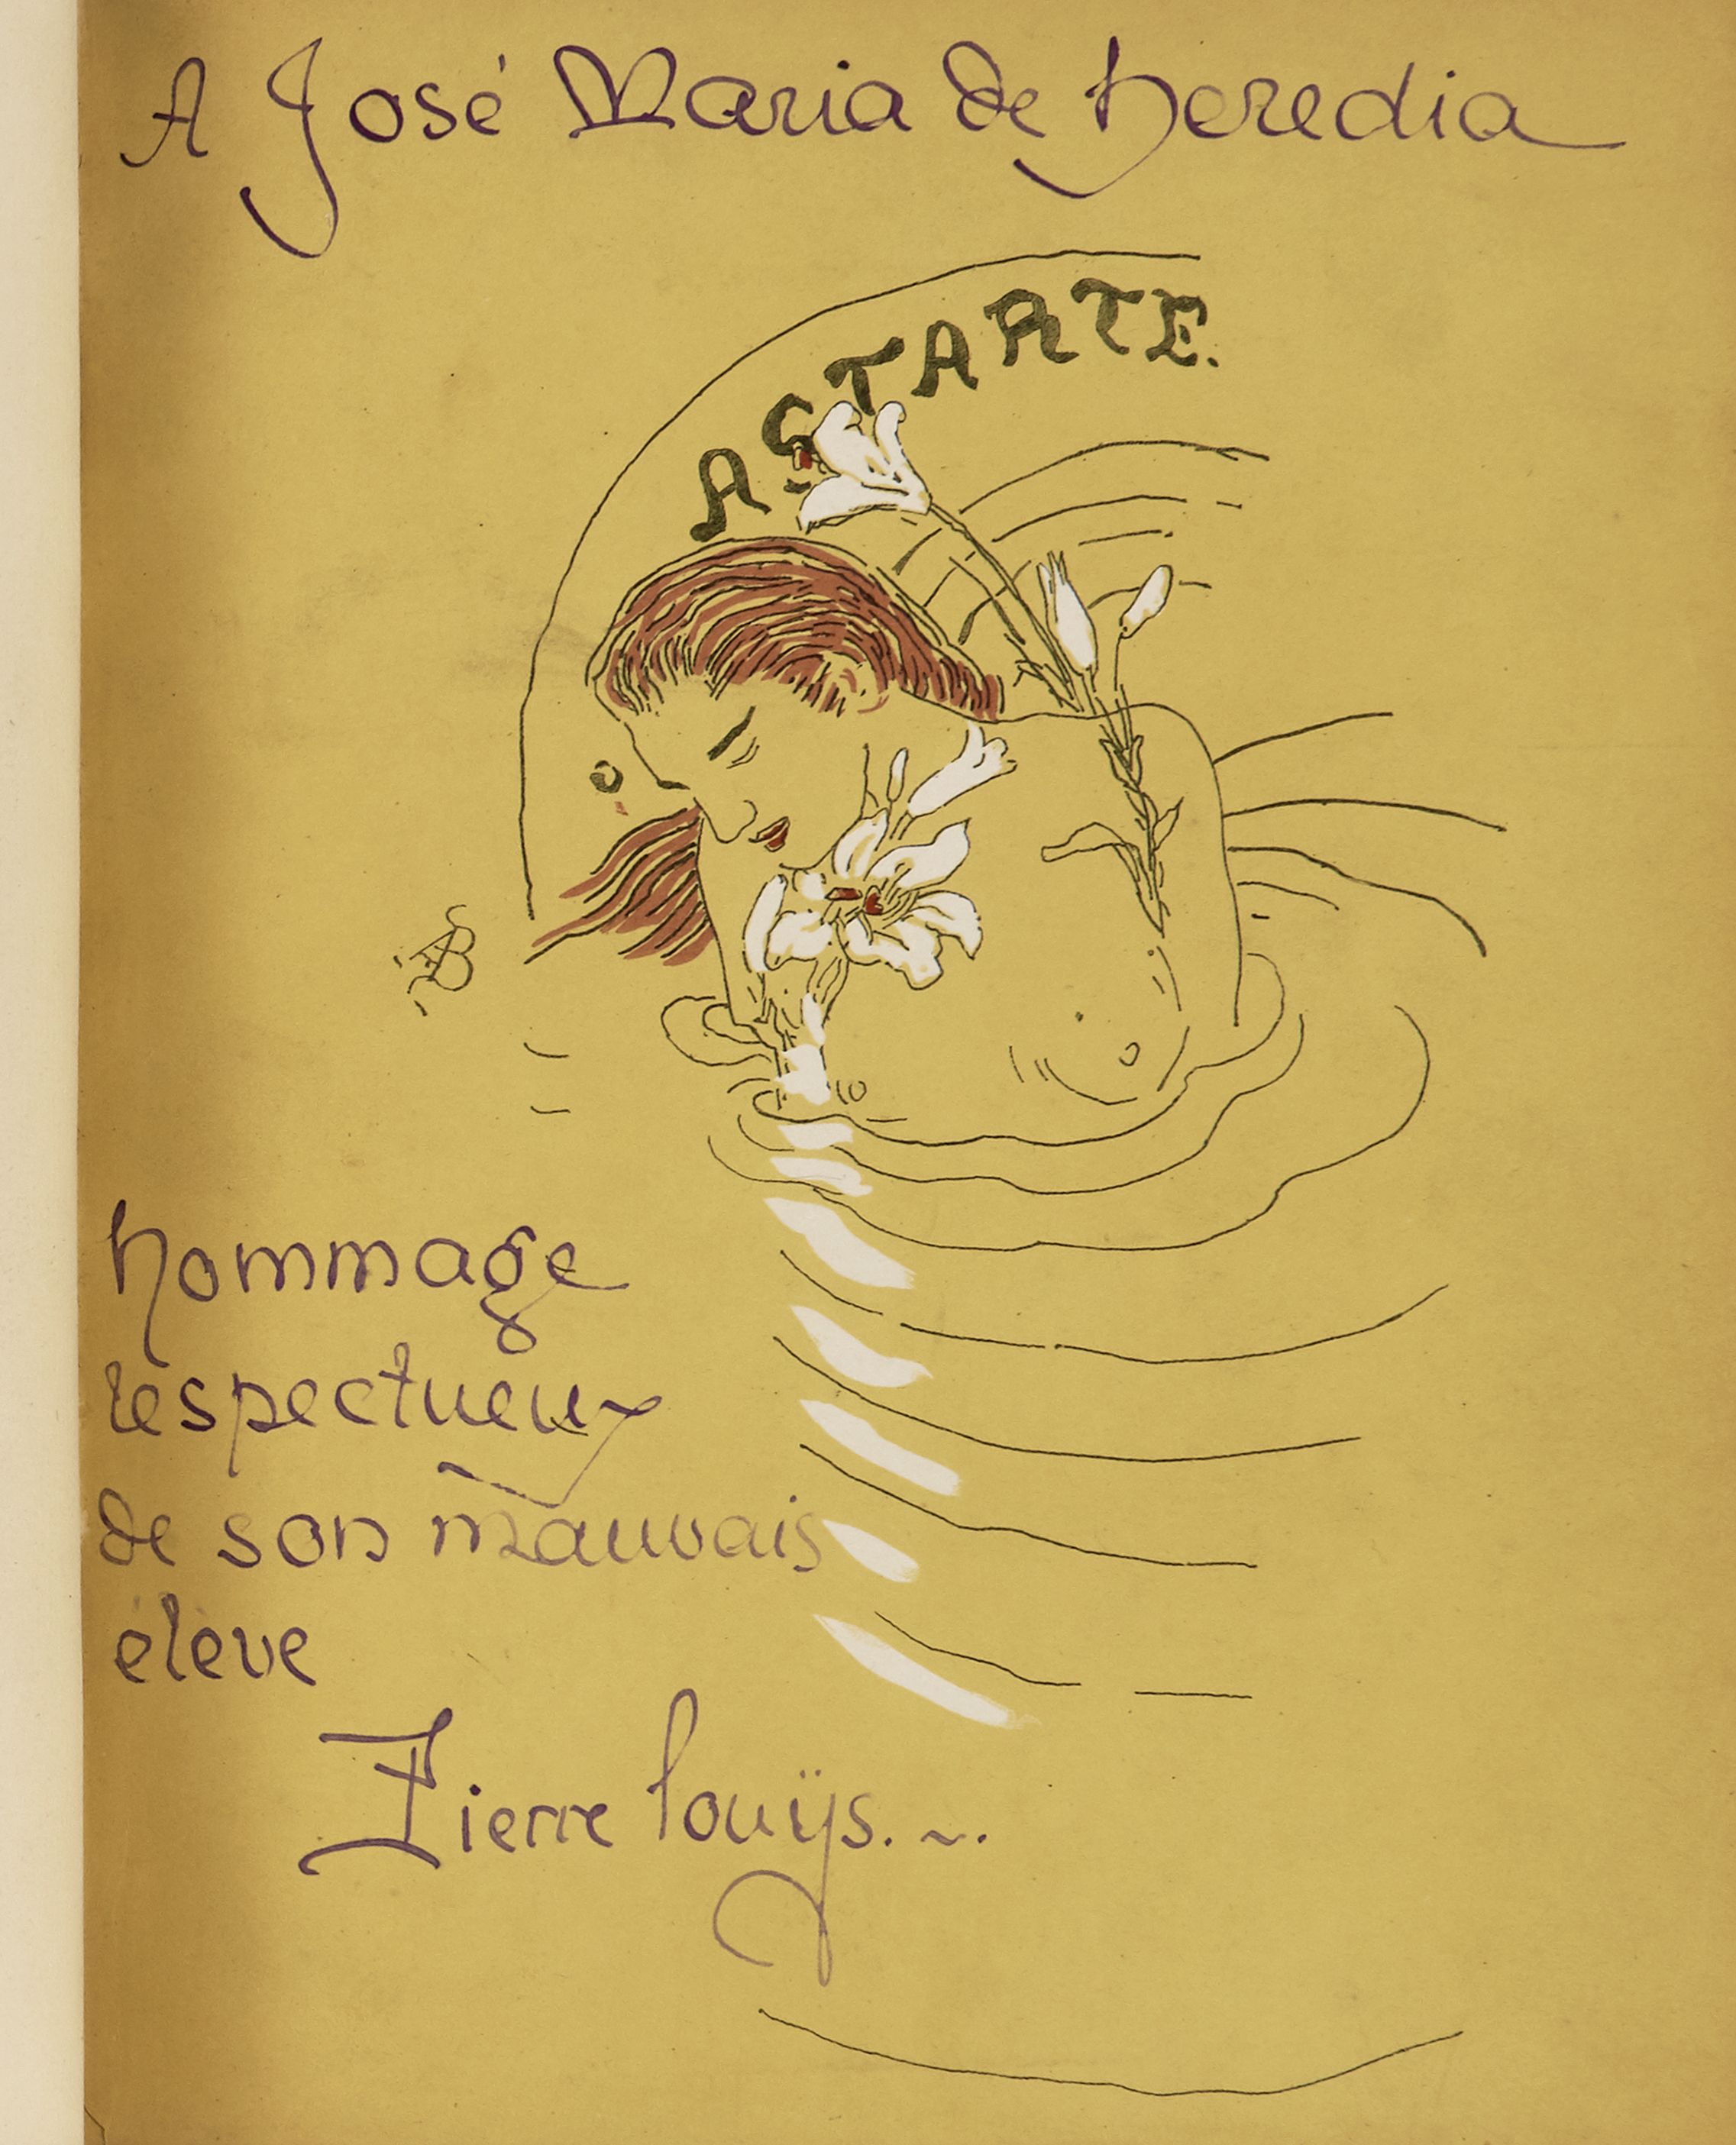 A José Maria de Heredia
ASTARTE.
hommage
respectueux
de son mauvais
élève
Pierre Louÿs...